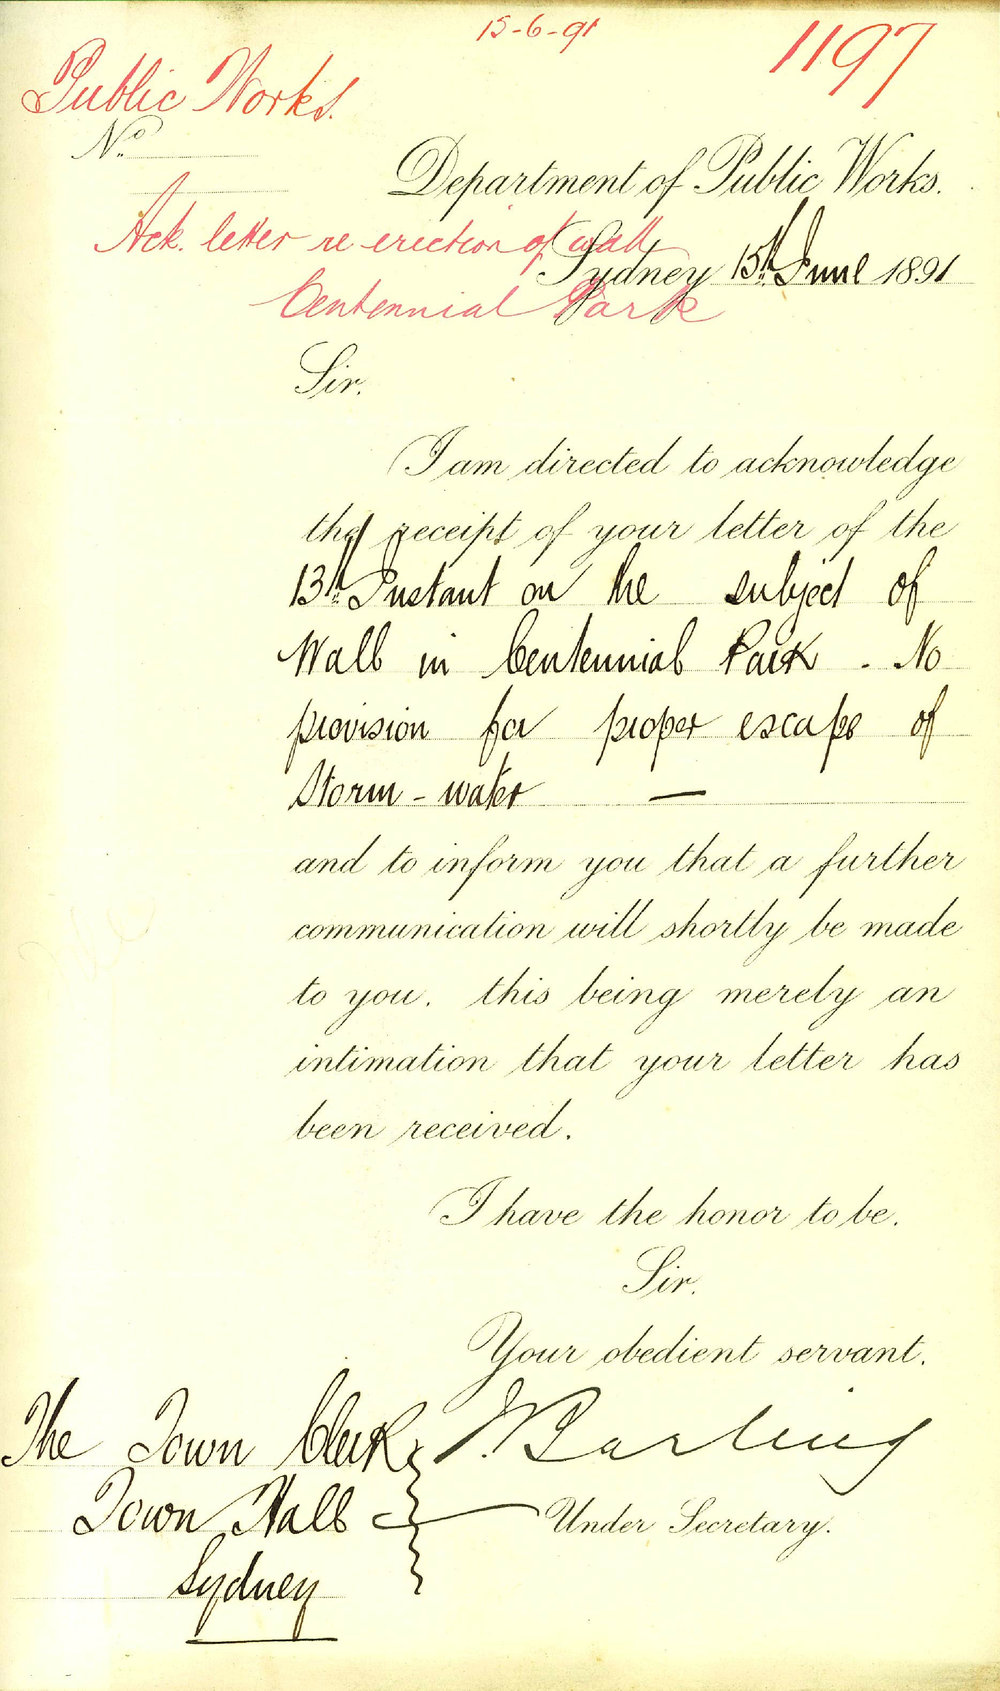 15-6-91
1197
Public Works.
No.
Department of Public Works.
Ack. letter re erection of wall
Sydney 15th June 1891
Centennial Park
Sir,
I am directed to acknowledge
the receipt of your letter of the
13th Instant on the subject of
Wall in Centennial Park. No
provision for proper escape of
Storm-water —
and to inform you that a further
communication will shortly be made
to you, this being merely an
intimation that your letter has
been received.
I have the honor to be,
Sir,
Your obedient servant,
J. Barling
The Town Clerk
Town Hall
Under Secretary.
Sydney